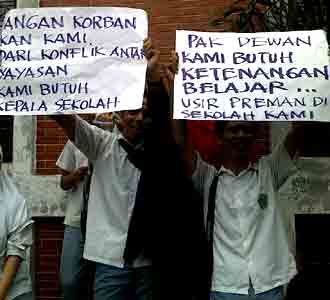 ANGAN KORBAN
KAN KAMI,
DARI KONFLIK ANTAR
YAYASAN
KAMI BUTUH
KEPALA SEKOLAH
PAK DEWAN
KAMI BUTUH
KETENANGAN
BELAJAR...
USIR PREMAN DI
SEKOLAH KAMI